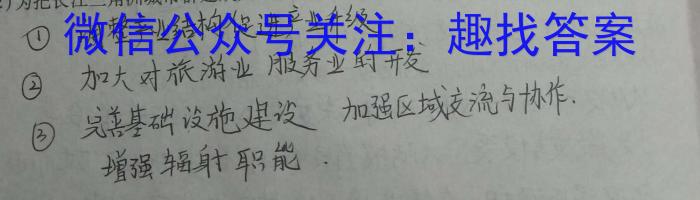 微信公众号关注：趣找答案
① 产业结构促进产业升级
② 加大对旅游业 服务业的开发
③ 完善基础设施建设 加强区域交流与协作.
增强辐射职能.